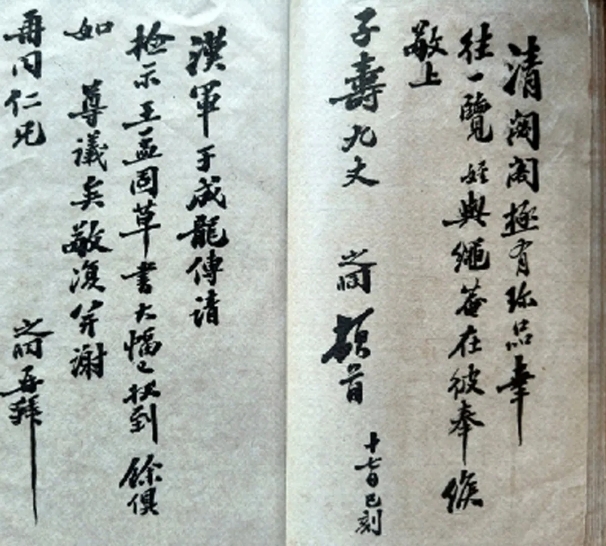 清閟閣極有珍品幸
往一覽 姪與繩菴在彼奉候
敬上
子壽九丈 之洞 頓首
十七日巳刻
漢軍于成龍傳請
檢示王孟固草書大幅已收到 餘俱
如 尊議矣敬復并謝
再同仁兄 之洞再拜